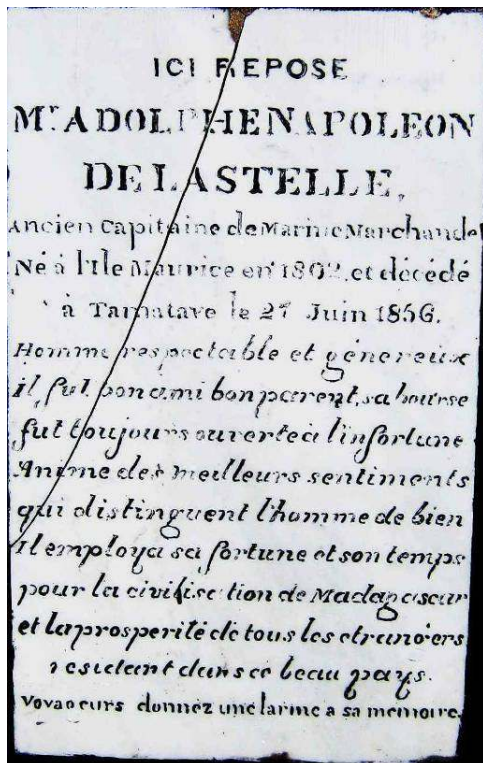 ICI REPOSE
Mr ADOLPHE NAPOLEON
DE LASTELLE,
Ancien Capitaine de Marine Marchande
Né à l'Ile Maurice en 1802, et décédé
à Tamatave le 27 Juin 1856.
Homme respectable et génereux
il fut bon ami bon parent, sa bourse
fut toujours ouverte à l'infortune
Anime des meilleurs sentiments
qui distinguent l'homme de bien
Il employa sa fortune et son temps
pour la civilisation de Madagascar
et la prosperité de tous les etrangers
residant dans ce beau pays.
Voyageurs donnez une larme a sa memoire.